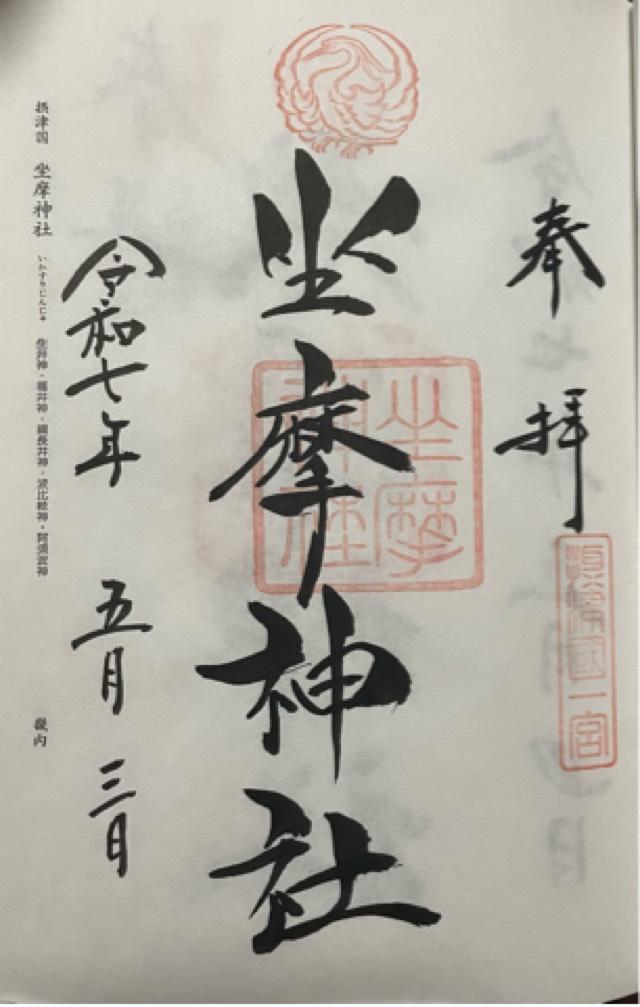 奉拝
摂津国一宮
坐摩神社
坐摩神社
令和七年 五月 三日
摂津国 坐摩神社 いかすりじんじゃ 生井神・福井神・綱長井神・波比祇神・阿須波神 畿内